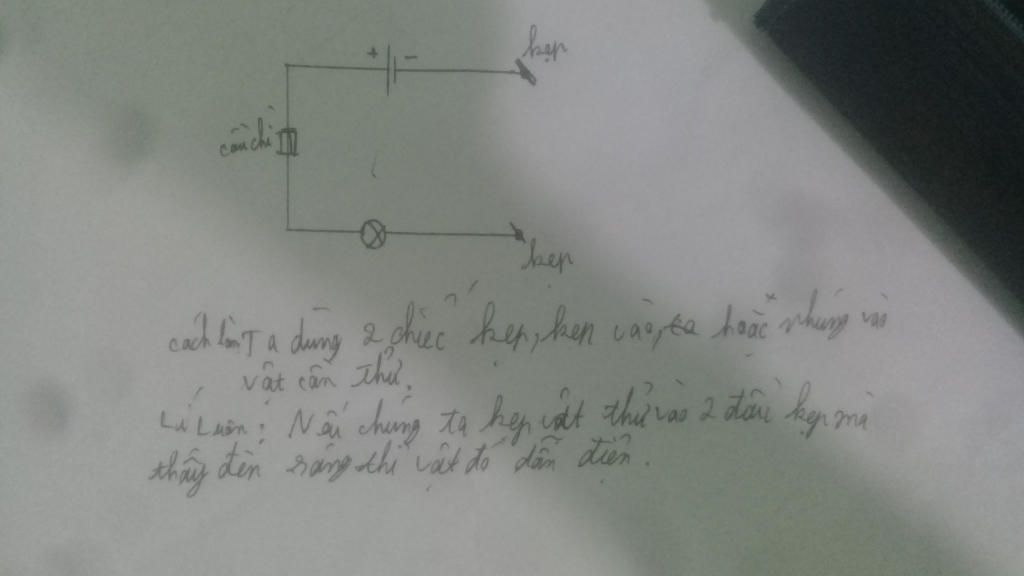 + -
kẹp
cầu chì
kẹp
cách làm Ta dùng 2 chiếc kẹp, kẹp vào, hoặc nhúng vào
vật cần thử.
Lí Luân: Nếu chúng ta kẹp vật thử vào 2 đầu kẹp mà
thấy đèn sáng thì vật đó dẫn điện.